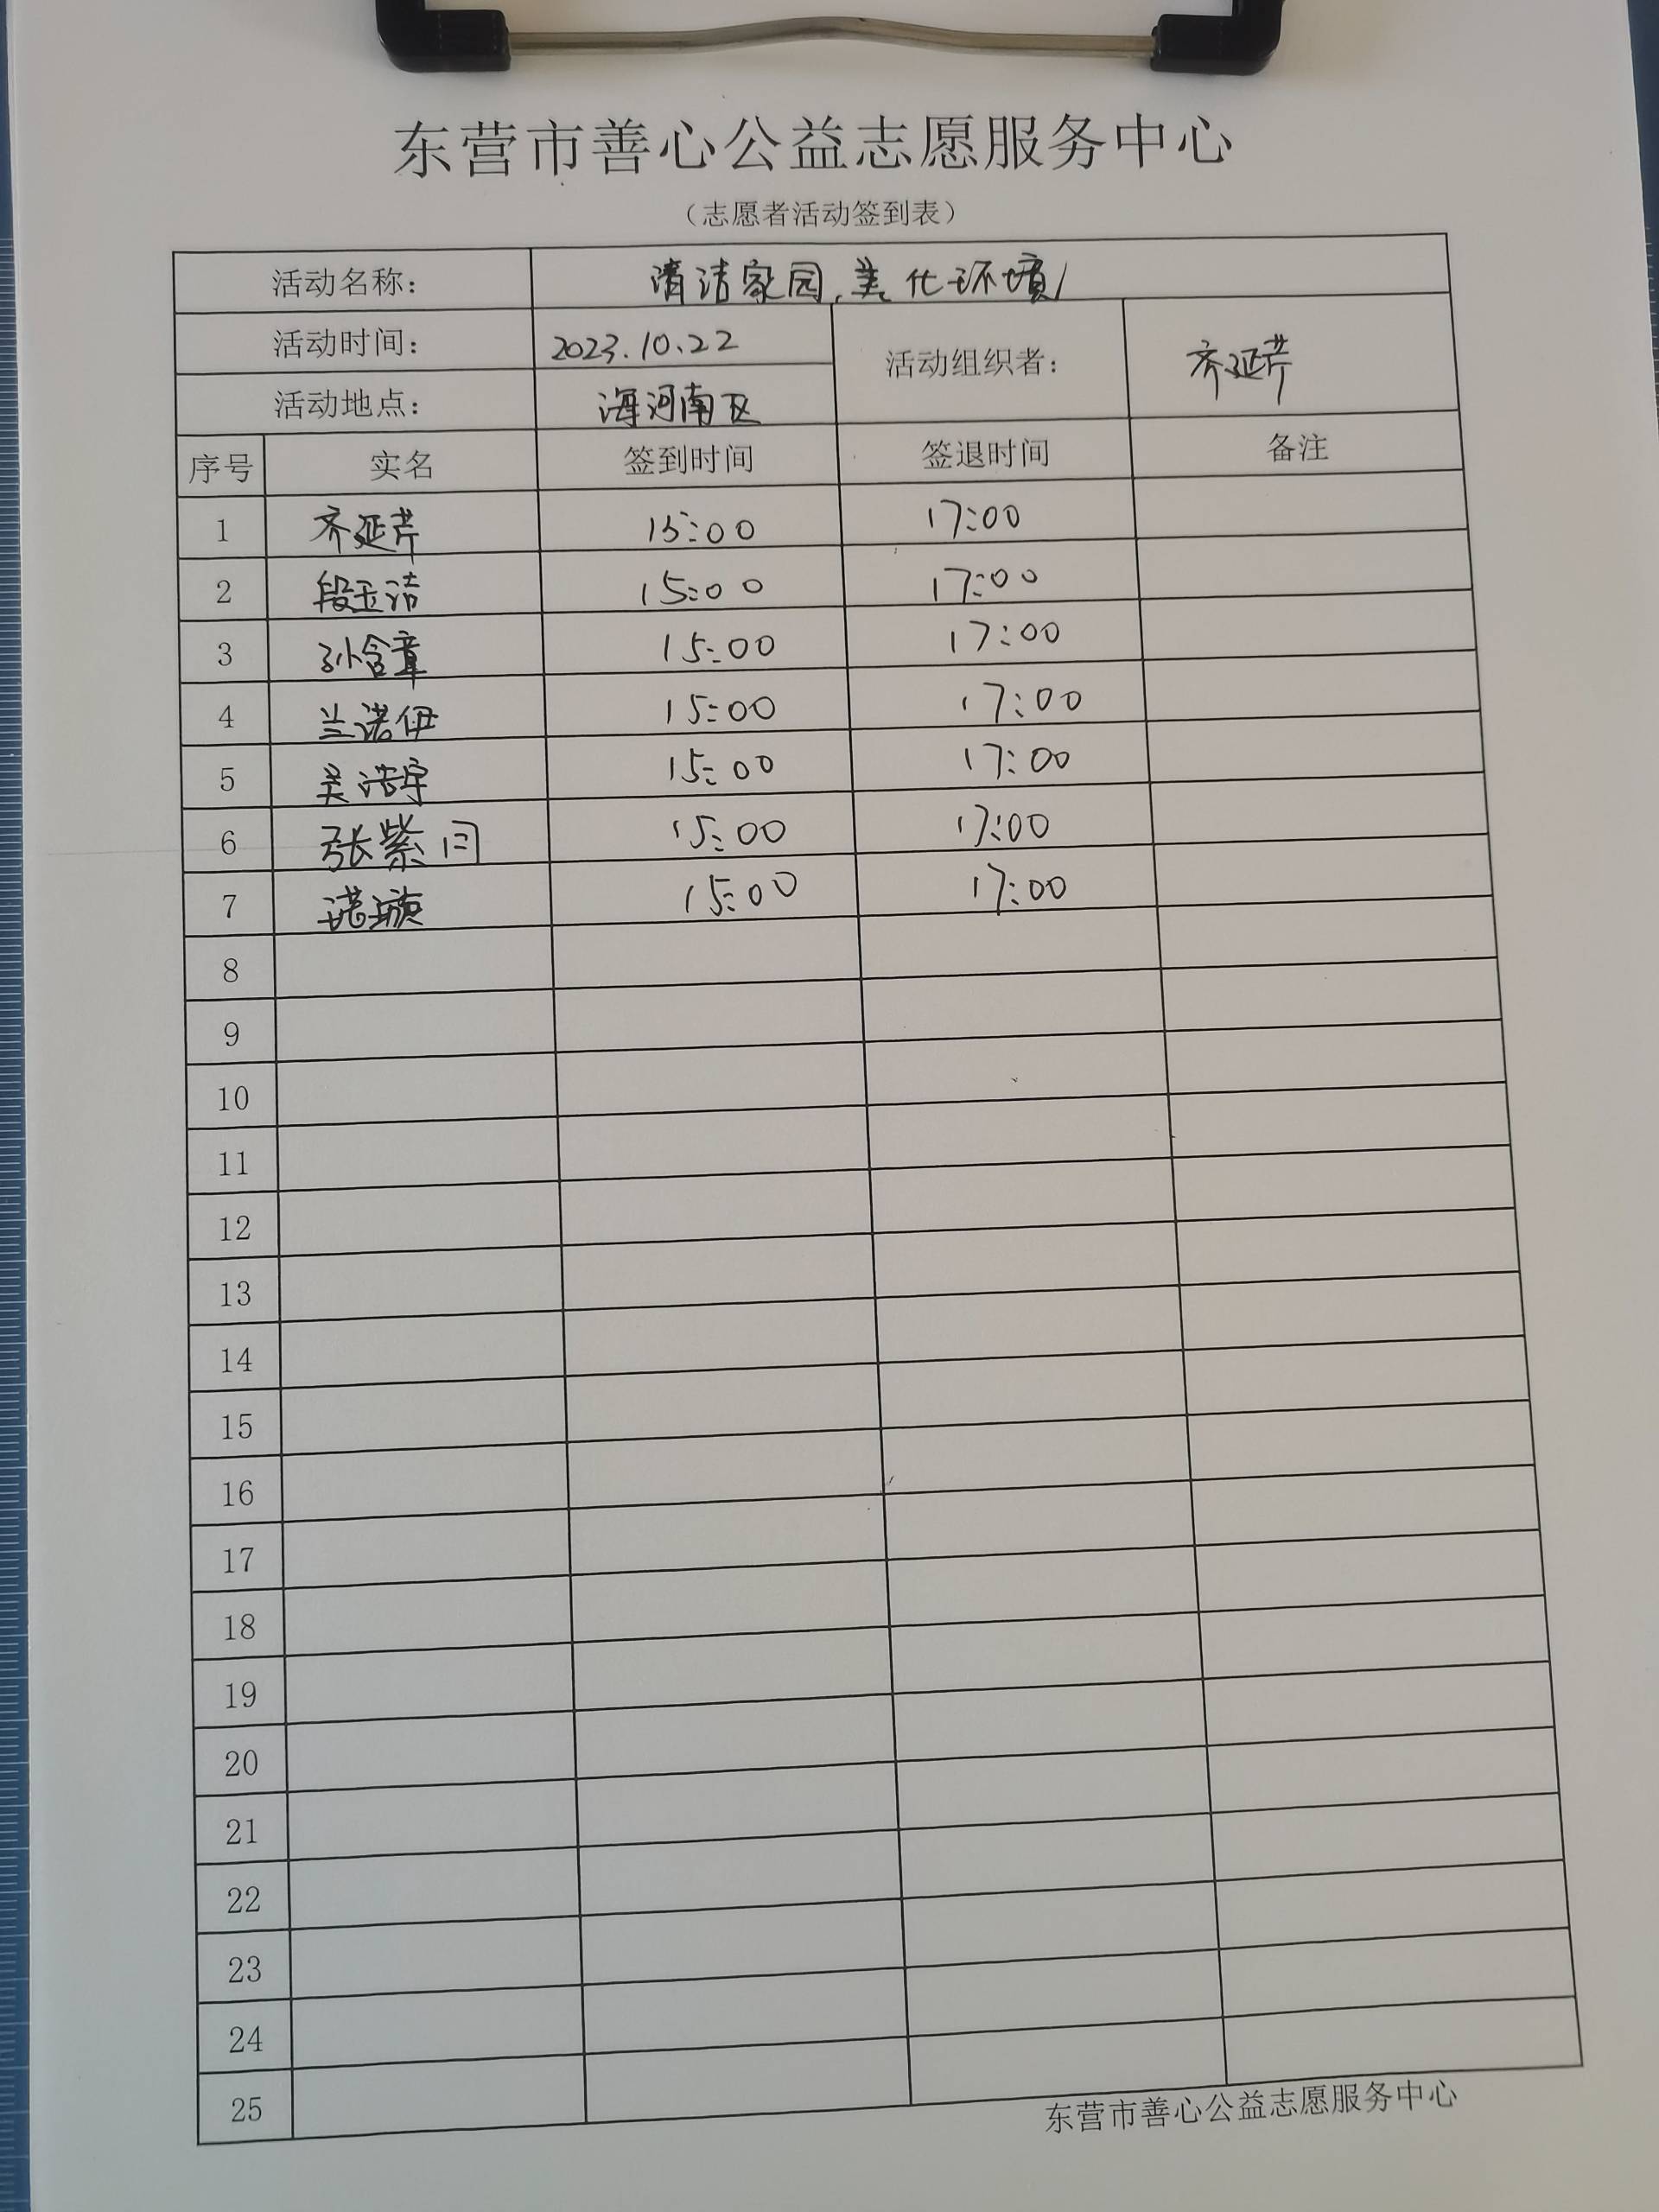 东营市善心公益志愿服务中心
（志愿者活动签到表）
活动名称： 清洁家园、美化环境
活动时间： 2023.10.22 活动组织者： 齐延芹
活动地点： 海河南区
序号 实名 签到时间 签退时间 备注
1 齐延芹 15:00 17:00
2 段玉洁 15:00 17:00
3 孙含章 15:00 17:00
4 兰诺伊 15:00 17:00
5 吴浩宇 15:00 17:00
6 张紫 15:00 17:00
7 诺璇 15:00 17:00
8
9
10
11
12
13
14
15
16
17
18
19
20
21
22
23
24
25
东营市善心公益志愿服务中心